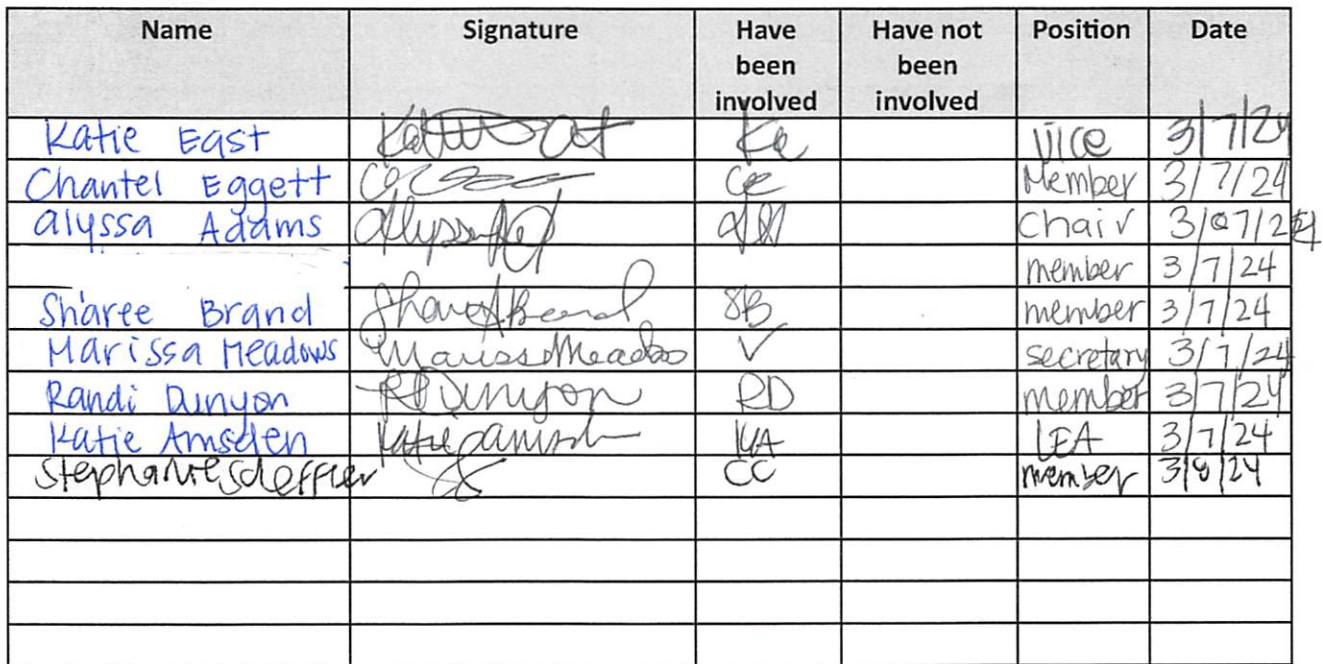 Name Signature Have been involved Have not been involved Position Date
Katie East Katie East Ke Vice 3/7/24
Chantel Eggett Ce Member 3/7/24
Alyssa Adams AA Chair 3/07/24
member 3/7/24
Sharee Brand Sharee Brand SB member 3/7/24
Marissa Meadows Marissa Meadows ✓ secretary 3/7/24
Randi Dunyon RDunyon RD member 3/7/24
Katie Amsden KA LEA 3/7/24
Stephanie CC member 3/8/24